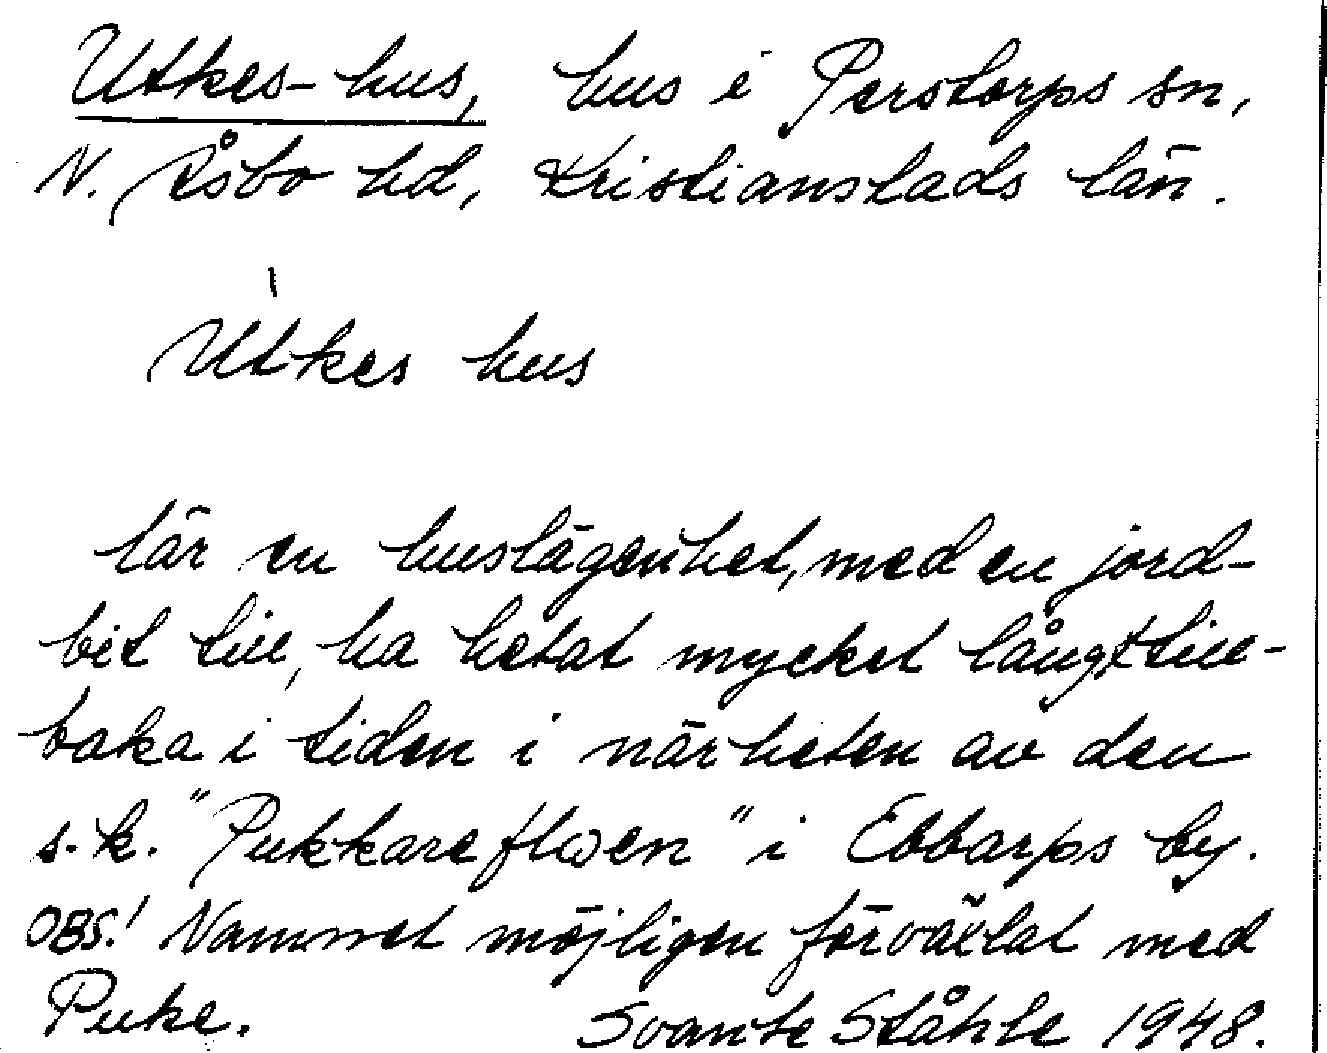 Utkes-hus, hus i Perstorps sn,
N. Åsbo hd, Kristianstads län.
Utkes hus
lär en huslägenhet, med en jord-
bit till, ha hetat mycket långt till-
baka i tiden i närheten av den
s.k. "Pukkareflwen" i Ebbarps by.
OBS! Namnet möjligen förväxlat med
Puke. Svante Ståhle 1948.